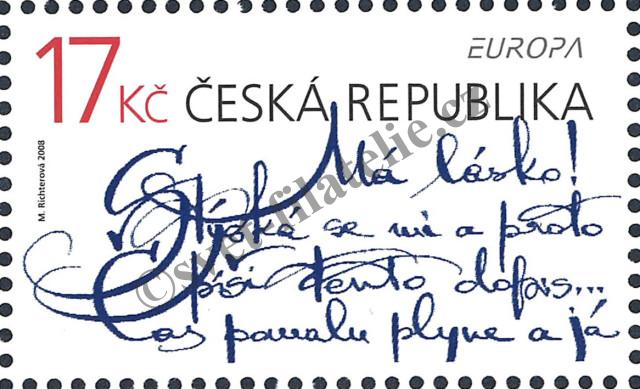 17 Kč ČESKÁ REPUBLIKA
EUROPA
M. Richterová 2008
Má lásko!
Stýská se mi a proto
píši tento dopis...
Čas pomalu plyne a já
©svet-filatelie.cz